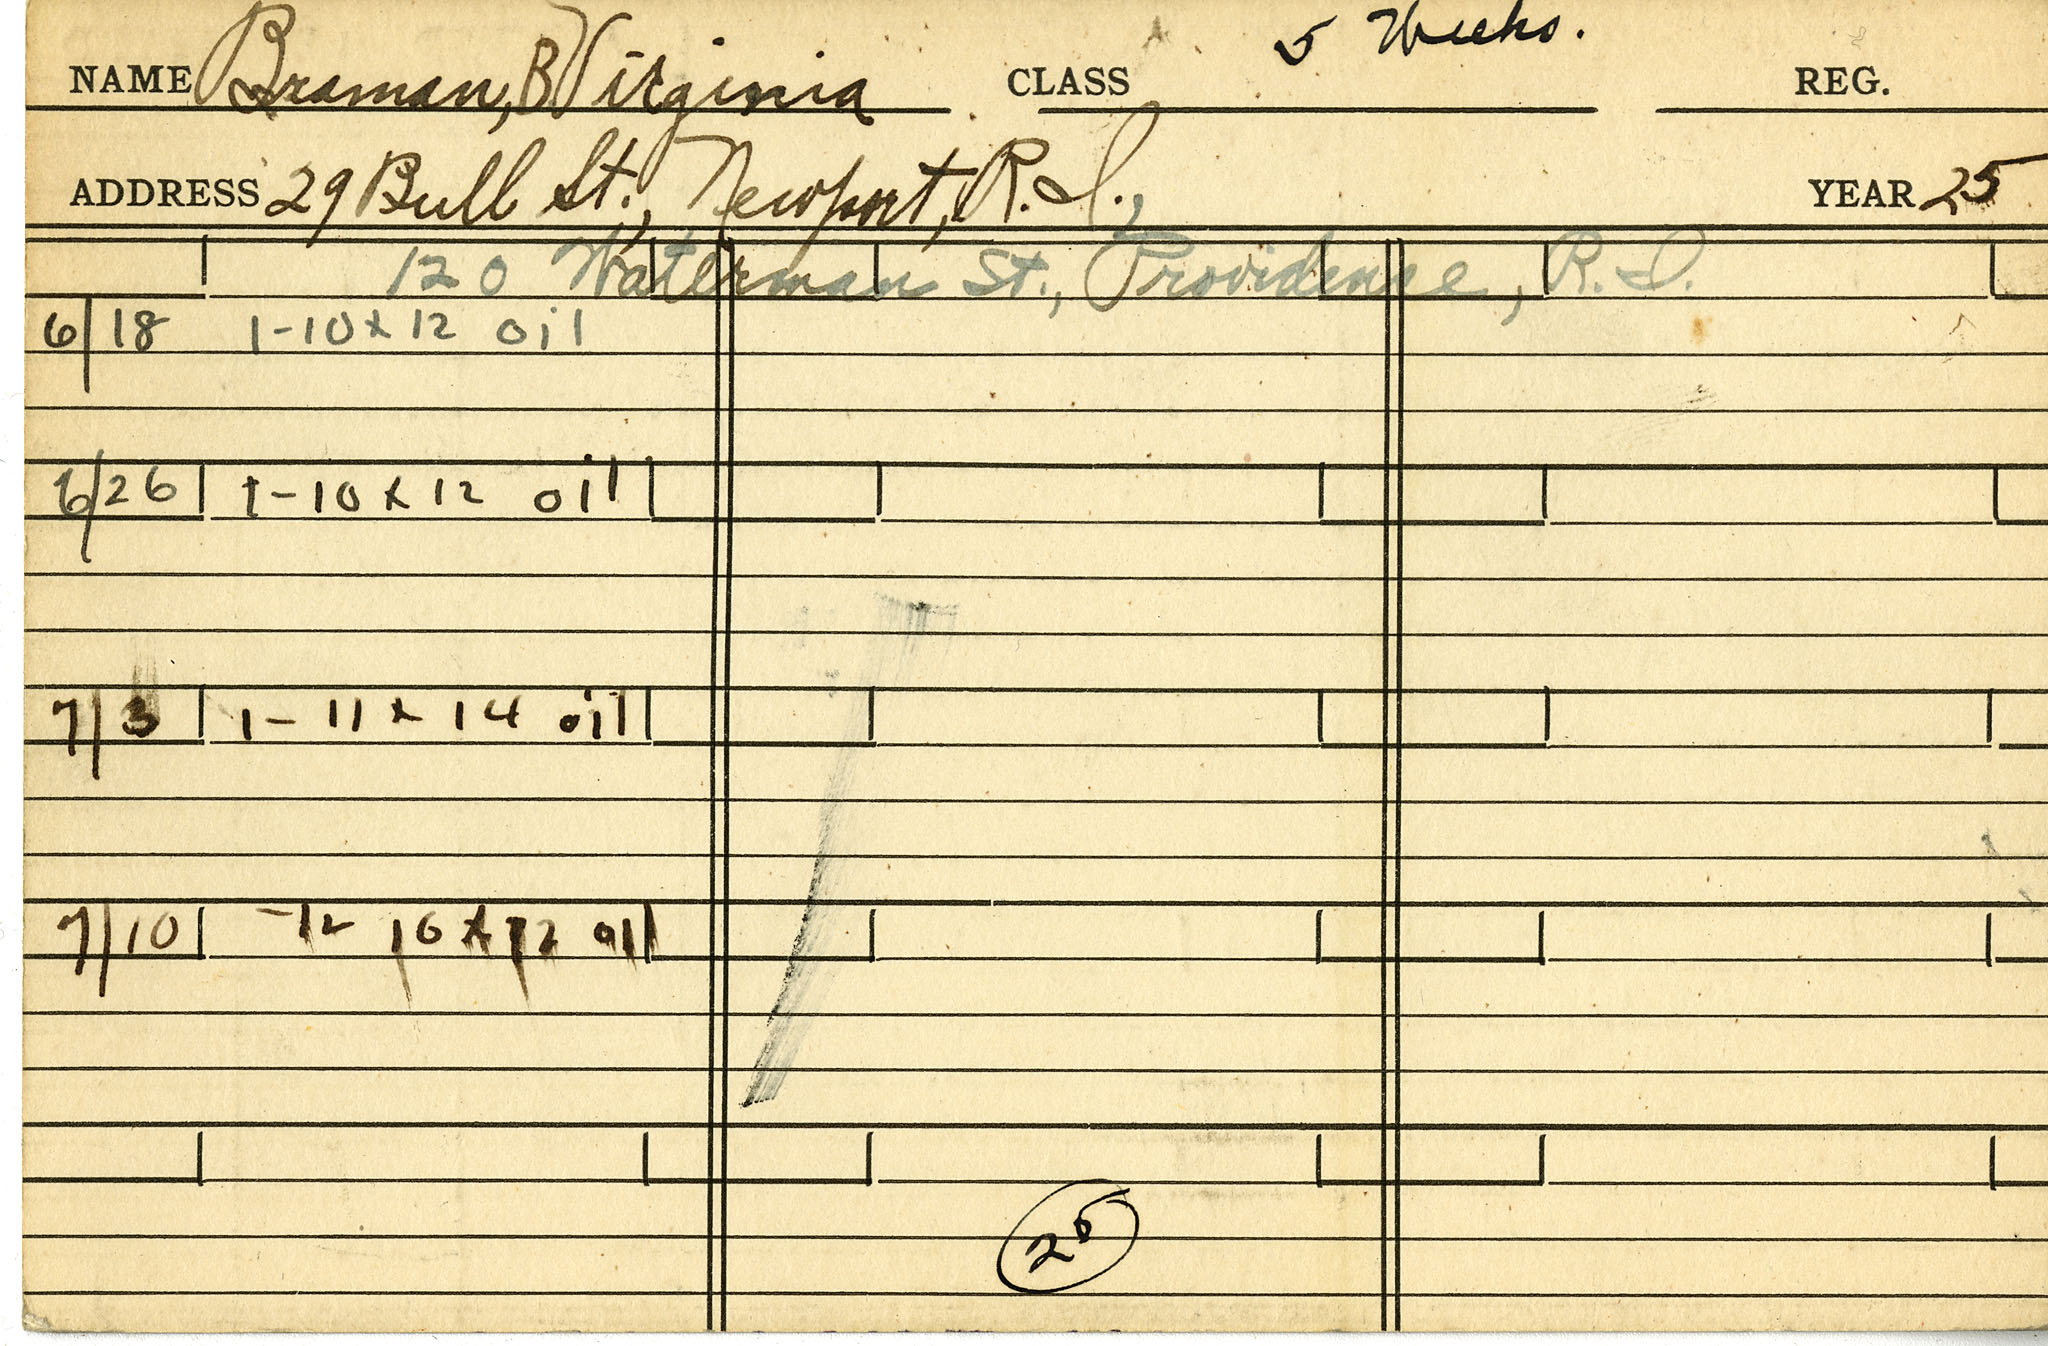 5 Weeks.
NAME Braman, B Virginia CLASS REG.
ADDRESS 29 Bull St., Newport, R.I., YEAR 25
120 Waterman St., Providence, R.I.
6/18 1-10x12 oil
6/26 1-10x12 oil
7/3 1-11x14 oil
7/10 10x12 oil
25